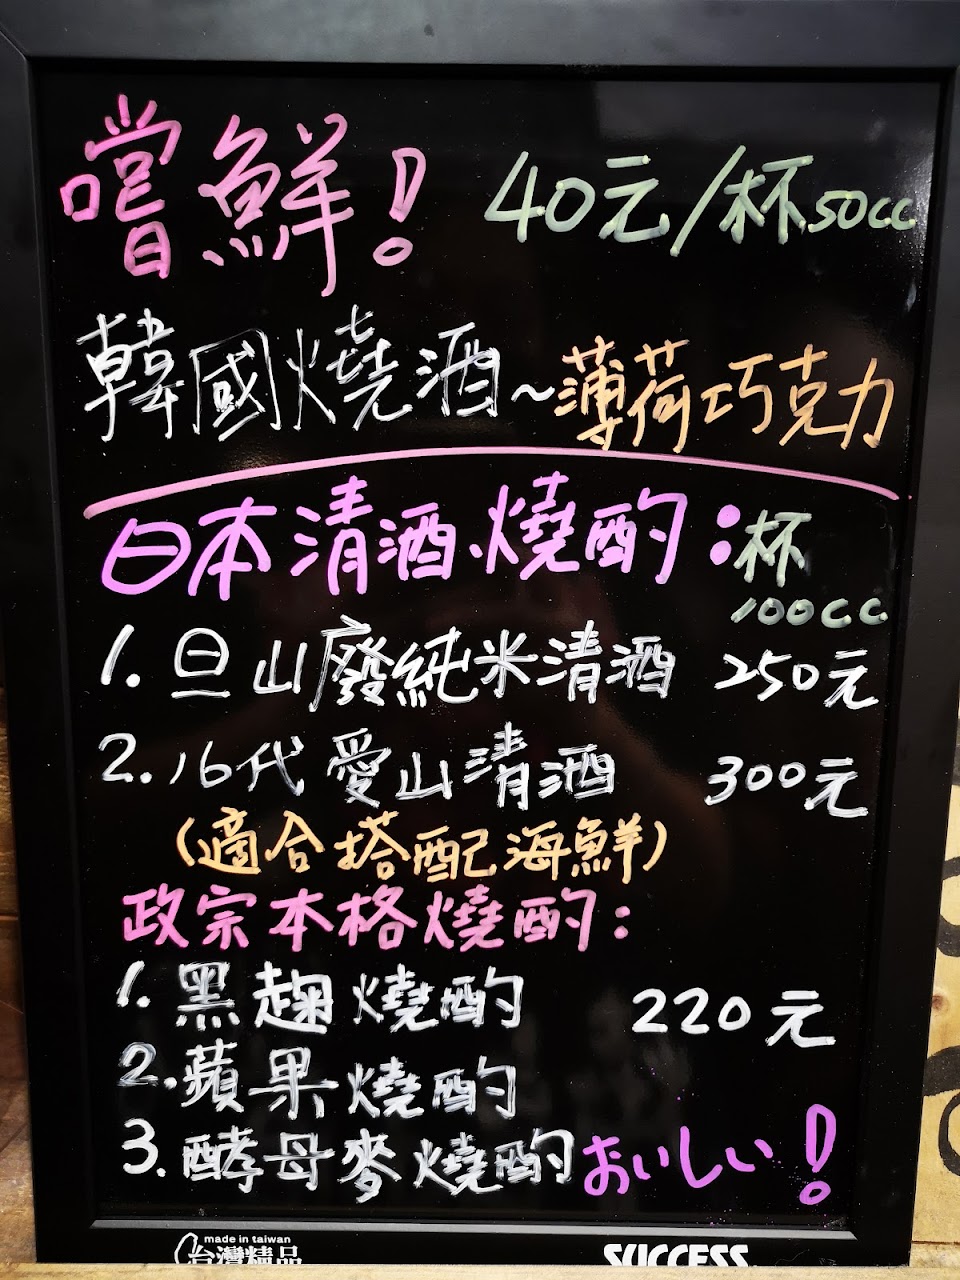 嚐鮮! 40元/杯50cc
韓國燒酒~薄荷巧克力
日本清酒、燒酌:杯
100cc
1. 旦山廢純米清酒 250元
2. 16代愛山清酒 300元
(適合搭配海鮮)
政宗本格燒酌:
1. 黑麴燒酌 220元
2. 蘋果燒酌
3. 酵母麥燒酌おいしい!
made in taiwan
台灣精品 SUCCESS